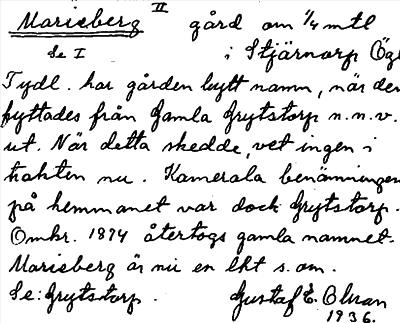 Marieberg II gård om 1/4 mtl
Se I i Stjärnorp Ögl
Tydl. har gården bytt namn, när den
flyttades från Gamla Grytstorp n.n.v.
ut. När detta skedde, vet ingen i
trakten nu. Kamerala benämningen
på hemmanet var dock Grytstorp.
Omkr. 1874 återtogs gamla namnet.
Marieberg är nu en lht s. om.
Se: Grytstorp. Gustaf E. Olman
1936.